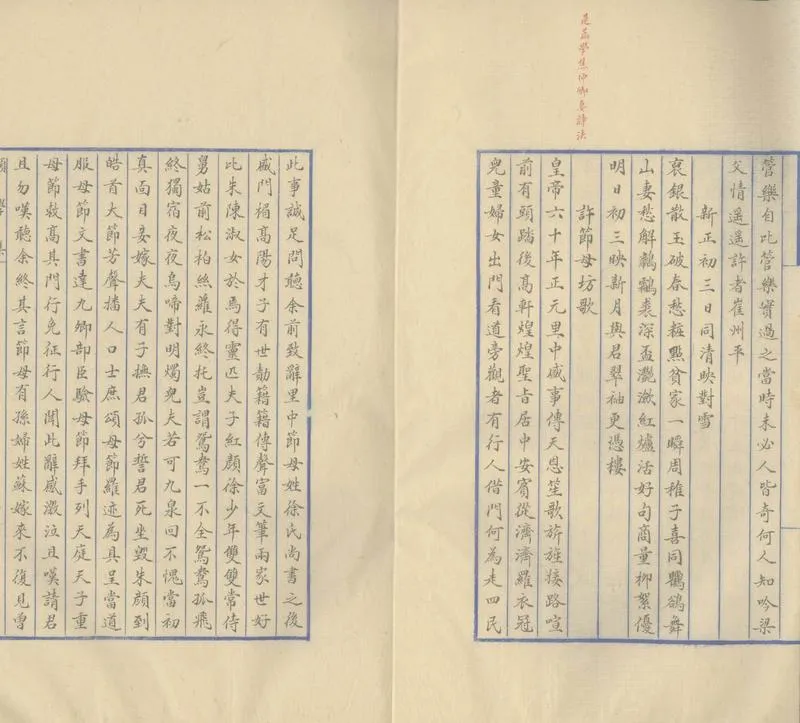 是篇學焦仲卿妻詩法
管樂自比管樂實過之當時未必人皆奇何人知吟梁
父情遥遥許者崔州平
新正初三日同清映對雪
哀銀散玉破春愁粧點貧家一瞬周稚子喜同鸜鵒舞
山妻愁解鷫鸘裘深盃灔潋紅爐活好句商量柳絮優
明日初三映新月與君翠袖更憑樓
許節母坊歌
皇帝六十年正元里中盛事傳天恩笙歌旂旌接路喧
前有頭踏後高軒煌煌聖旨居中安賓從濟濟羅衣冠
兒童婦女出門看道旁觀者有行人借門何為走四民
此事誠足問聽余前致辭里中節母姓徐氏尚書之後
盛門楣高陽才子有世勣籍籍傳聲富文筆兩家世好
比朱陳淑女於焉得靈匹夫子紅顏徐少年雙雙常侍
舅姑前松柏絲羅永終托豈謂鴛鴦一不全鴛鴦孤飛
終獨宿夜夜烏啼對明燭兒夫若可九泉回不愧當初
真面目妾嫁夫夫有子撫君孤兮誓君死坐毀朱顏到
皓首大節芳聲播人口士庶頌母節羅迹為具呈當道
服母節文書達九卿部臣驗母節拜手列天庭天子重
母節敕高其門行免征行人聞此辭感激泣且嘆請君
且勿嘆聽余終其言節母有孫婦姓蘇嫁來不復見曾